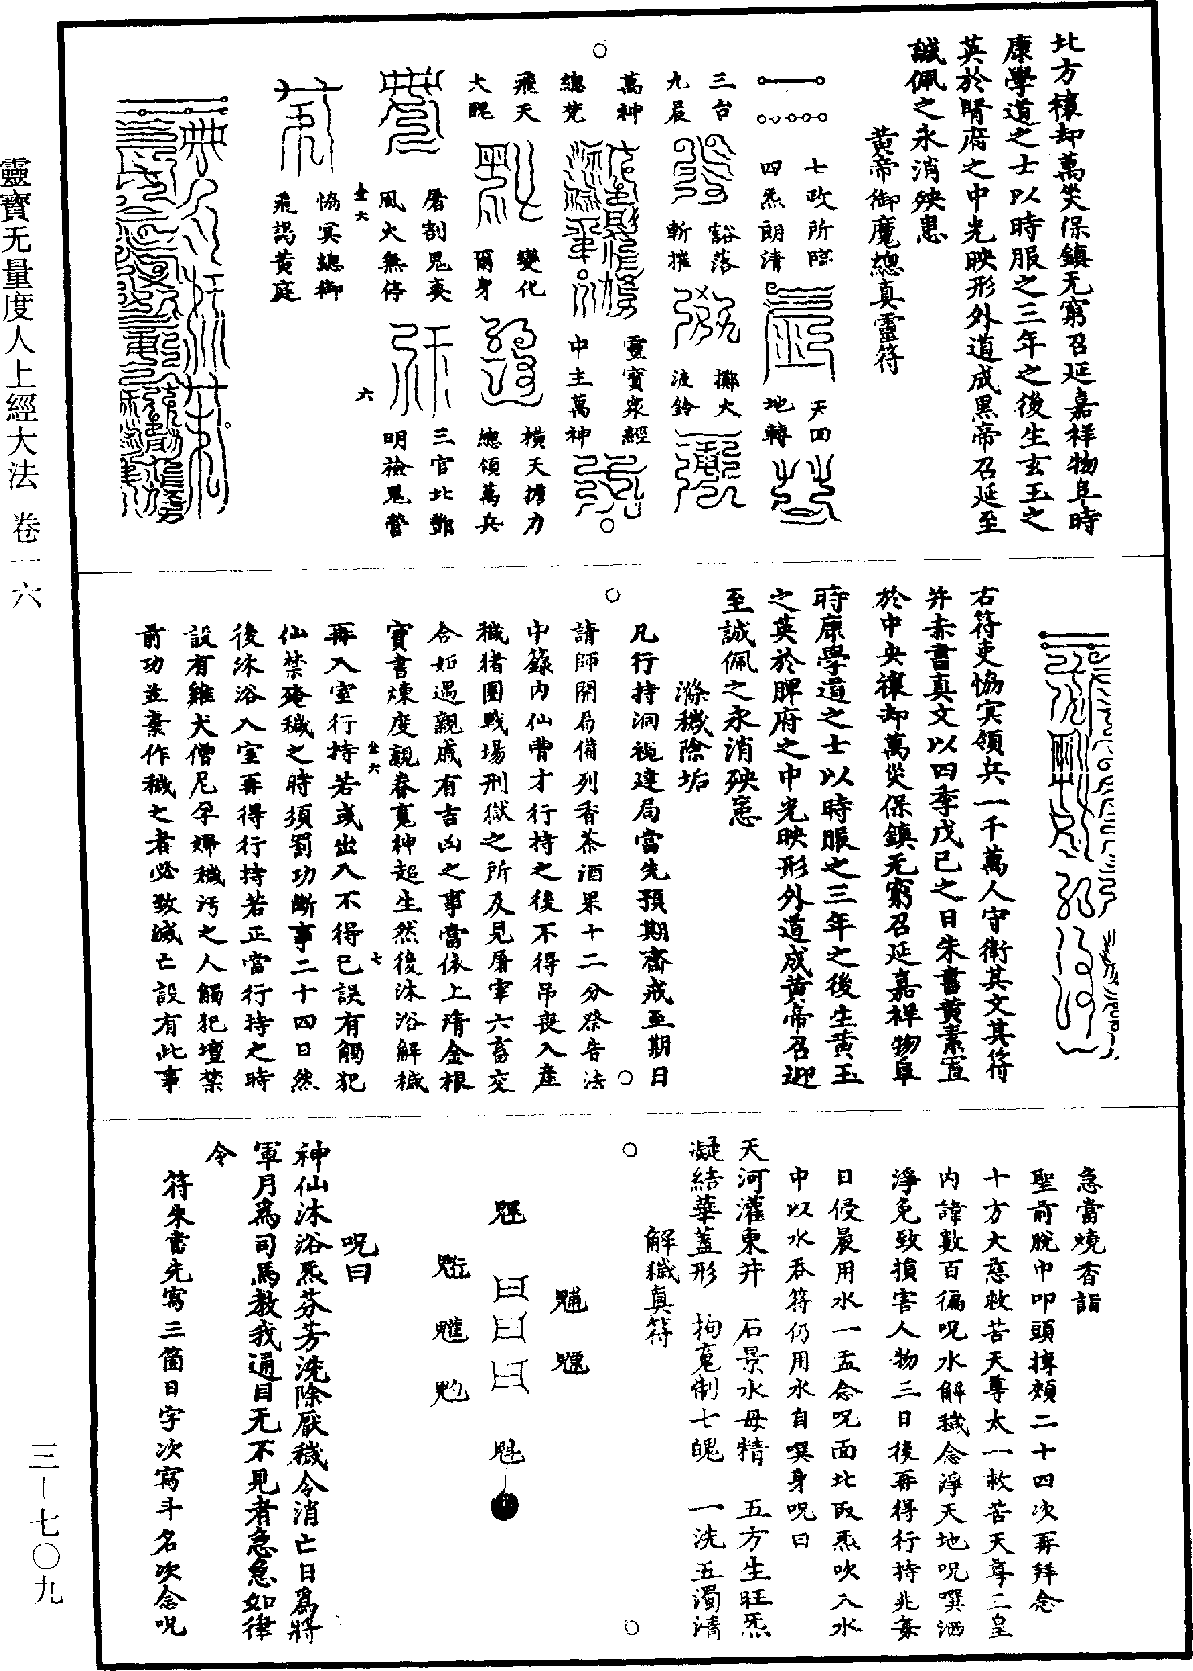 北方禳却萬災保鎮无窮召延嘉祥物阜時
康學道之士以時服之三年之後生玄玉之
英於腎府之中光映形外道成黑帝召延至
誠佩之永消殃患
黃帝御魔總真靈符
七政所臨
四炁朗清
天回
地轉
三台
九辰
豁落
斬摧
擲火
流鈴
萬神
總梵
靈寶眾經
中主萬神
飛天
大醜
變化
爾身
橫天擔力
總領萬兵
屠割鬼爽
風火無停
三官北酆
明檢鬼營
協冥總御
飛謁黃庭
右符吏協冥領兵一千萬人守衛其文其符
并赤書真文以四季戊己之日朱書黃素置
於中央禳却萬災保鎮无窮召延嘉祥物阜
時康學道之士以時服之三年之後生黃玉
之英於脾府之中光映形外道成黃帝召迎
至誠佩之永消殃患
滌穢除垢
凡行持洞視建局當先預期齋戒至期日
請師開局備列香茶酒果十二分祭告法
中籙內仙曹才行持之後不得吊喪入產
穢猪圈戰場刑獄之所及見屠宰六畜交
合如遇親戚有吉凶之事當依上清金根
寶書煉度親眷魂神超生然後沐浴解穢
再入室行持若或出入不得已誤有觸犯
仙禁殗穢之時須罰功斷事二十四日然
後沐浴入室再得行持若正當行持之時
設有雞犬僧尼孕婦穢污之人觸犯壇禁
前功並棄作穢之者必致滅亡設有此事
急當燒香詣
聖前脫巾叩頭搏頰二十四次再拜念
十方大慈救苦天尊太一救苦天尊二皇
內諱數百徧呪水解穢念淨天地呪噀洒
淨免致損害人物三日後再得行持兆每
日侵晨用水一盂念呪面北取炁吹入水
中以水吞符仍用水自噀身呪曰
天河灌東井　石景水母精　五方生旺炁
凝結華蓋形　拘魂制七魄　一洗五濁清
解穢真符
魁
呪曰
神仙沐浴炁芬芳洗除厭穢令消亡日為將
軍月為司馬教我通目无不見者急急如律
令
符朱書先寫三箇日字次寫斗名次念呪
靈寶无量度人上經大法　卷一六
三—七〇九